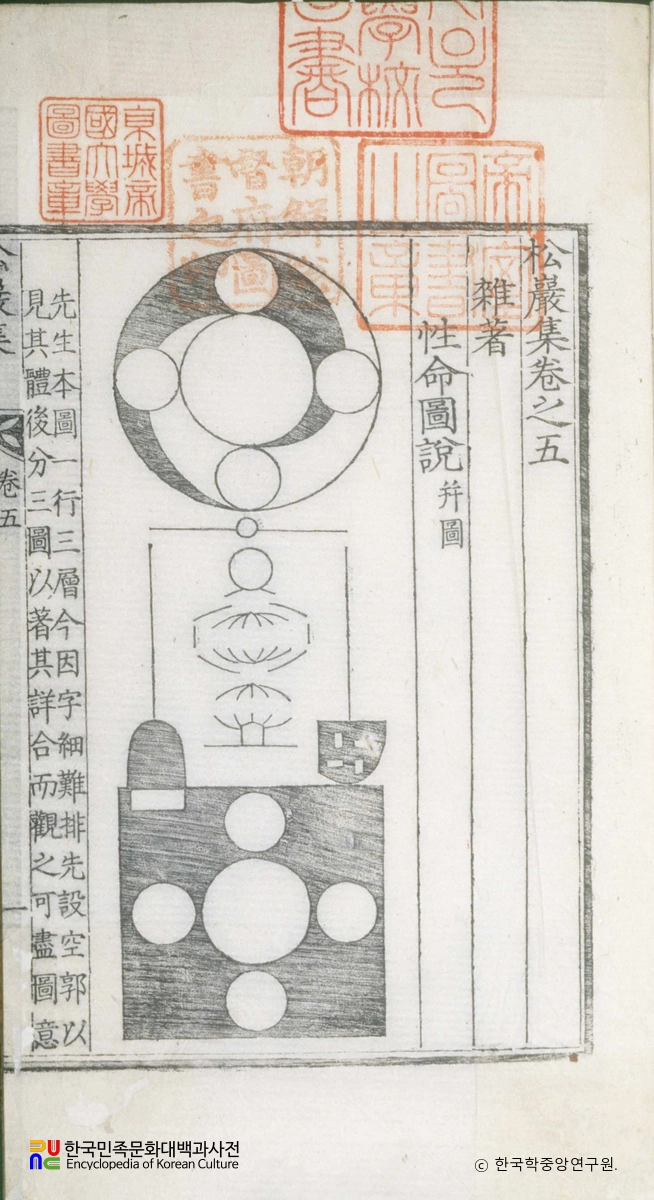 松巖集卷之五
雜著
性命圖說 幷圖
先生本圖一行三層今因字細難排先設空郭以
見其體後分三圖以著其詳合而觀之可盡圖意
卷五
帝室
圖書
之章
朝鮮總
督府圖
書之印
京城帝
國大學
圖書章
한국민족문화대백과사전
Encyclopedia of Korean Culture
ⓒ 한국학중앙연구원.